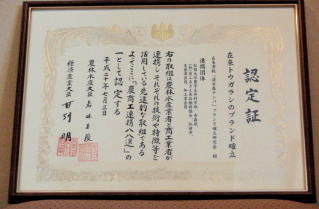 認定証
在来トウガラシのブランド確立
連携団体
右の取組は農林水産業者と商工業者が
連携しそれぞれの技術や特徴等を
活用している先進的な取組である
よってここに「農商工連携八八選」の
一として認定する
平成二十年七月三日
農林水産大臣 若林正俊
経済産業大臣 甘利明